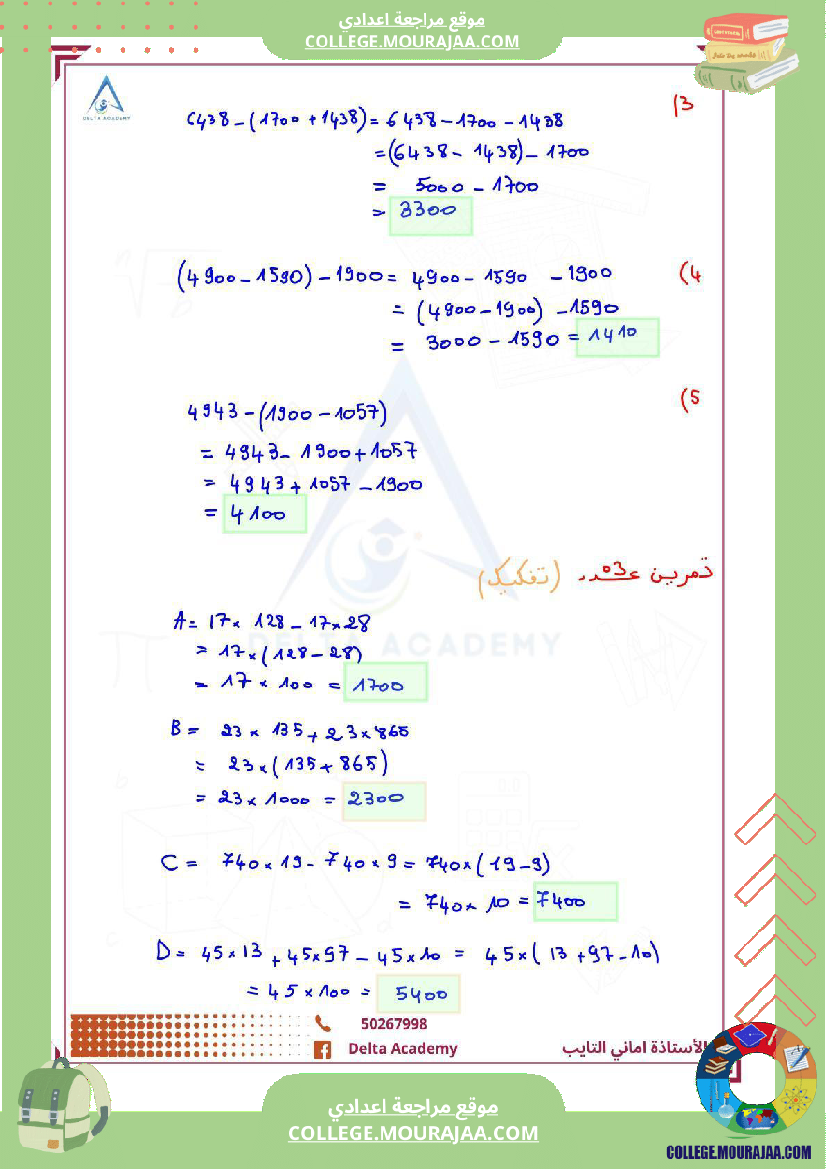 موقع مراجعة اعدادي
COLLEGE.MOURAJAA.COM
DELTA ACADEMY
(3
6438 - (1700 + 1438) = 6438 - 1700 - 1438
= (6438 - 1438) - 1700
= 5000 - 1700
= 3300
(4
(4900 - 1590) - 1900 = 4900 - 1590 - 1900
= (4900 - 1900) - 1590
= 3000 - 1590 = 1410
(5
4943 - (1900 - 1057)
= 4943 - 1900 + 1057
= 4943 + 1057 - 1900
= 4100
تمرين عدد 3 (تفكيك)
DELTA ACADEMY
A = 17 × 128 - 17 × 28
= 17 × (128 - 28)
= 17 × 100 = 1700
B = 23 × 135 + 23 × 865
= 23 × (135 + 865)
= 23 × 1000 = 2300
C = 740 × 19 - 740 × 9 = 740 × (19 - 9)
= 740 × 10 = 7400
D = 45 × 13 + 45 × 97 - 45 × 10 = 45 × (13 + 97 - 10)
= 45 × 100 = 5400
50267998
Delta Academy
الأستاذة اماني التايب
موقع مراجعة اعدادي
COLLEGE.MOURAJAA.COM
COLLEGE.MOURAJAA.COM